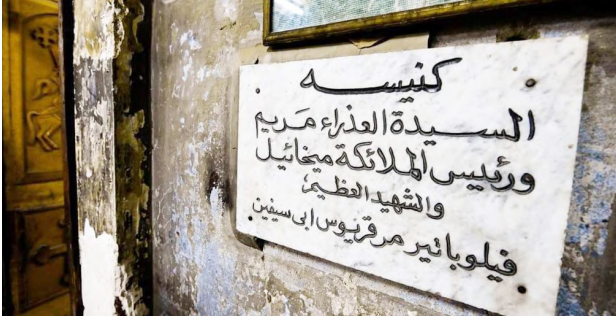 كنيسه
السيدة العذراء مريم
ورئيس الملائكة ميخائيل
والشهيد العظيم
فيلوباتير مرقريوس ابى سيفين